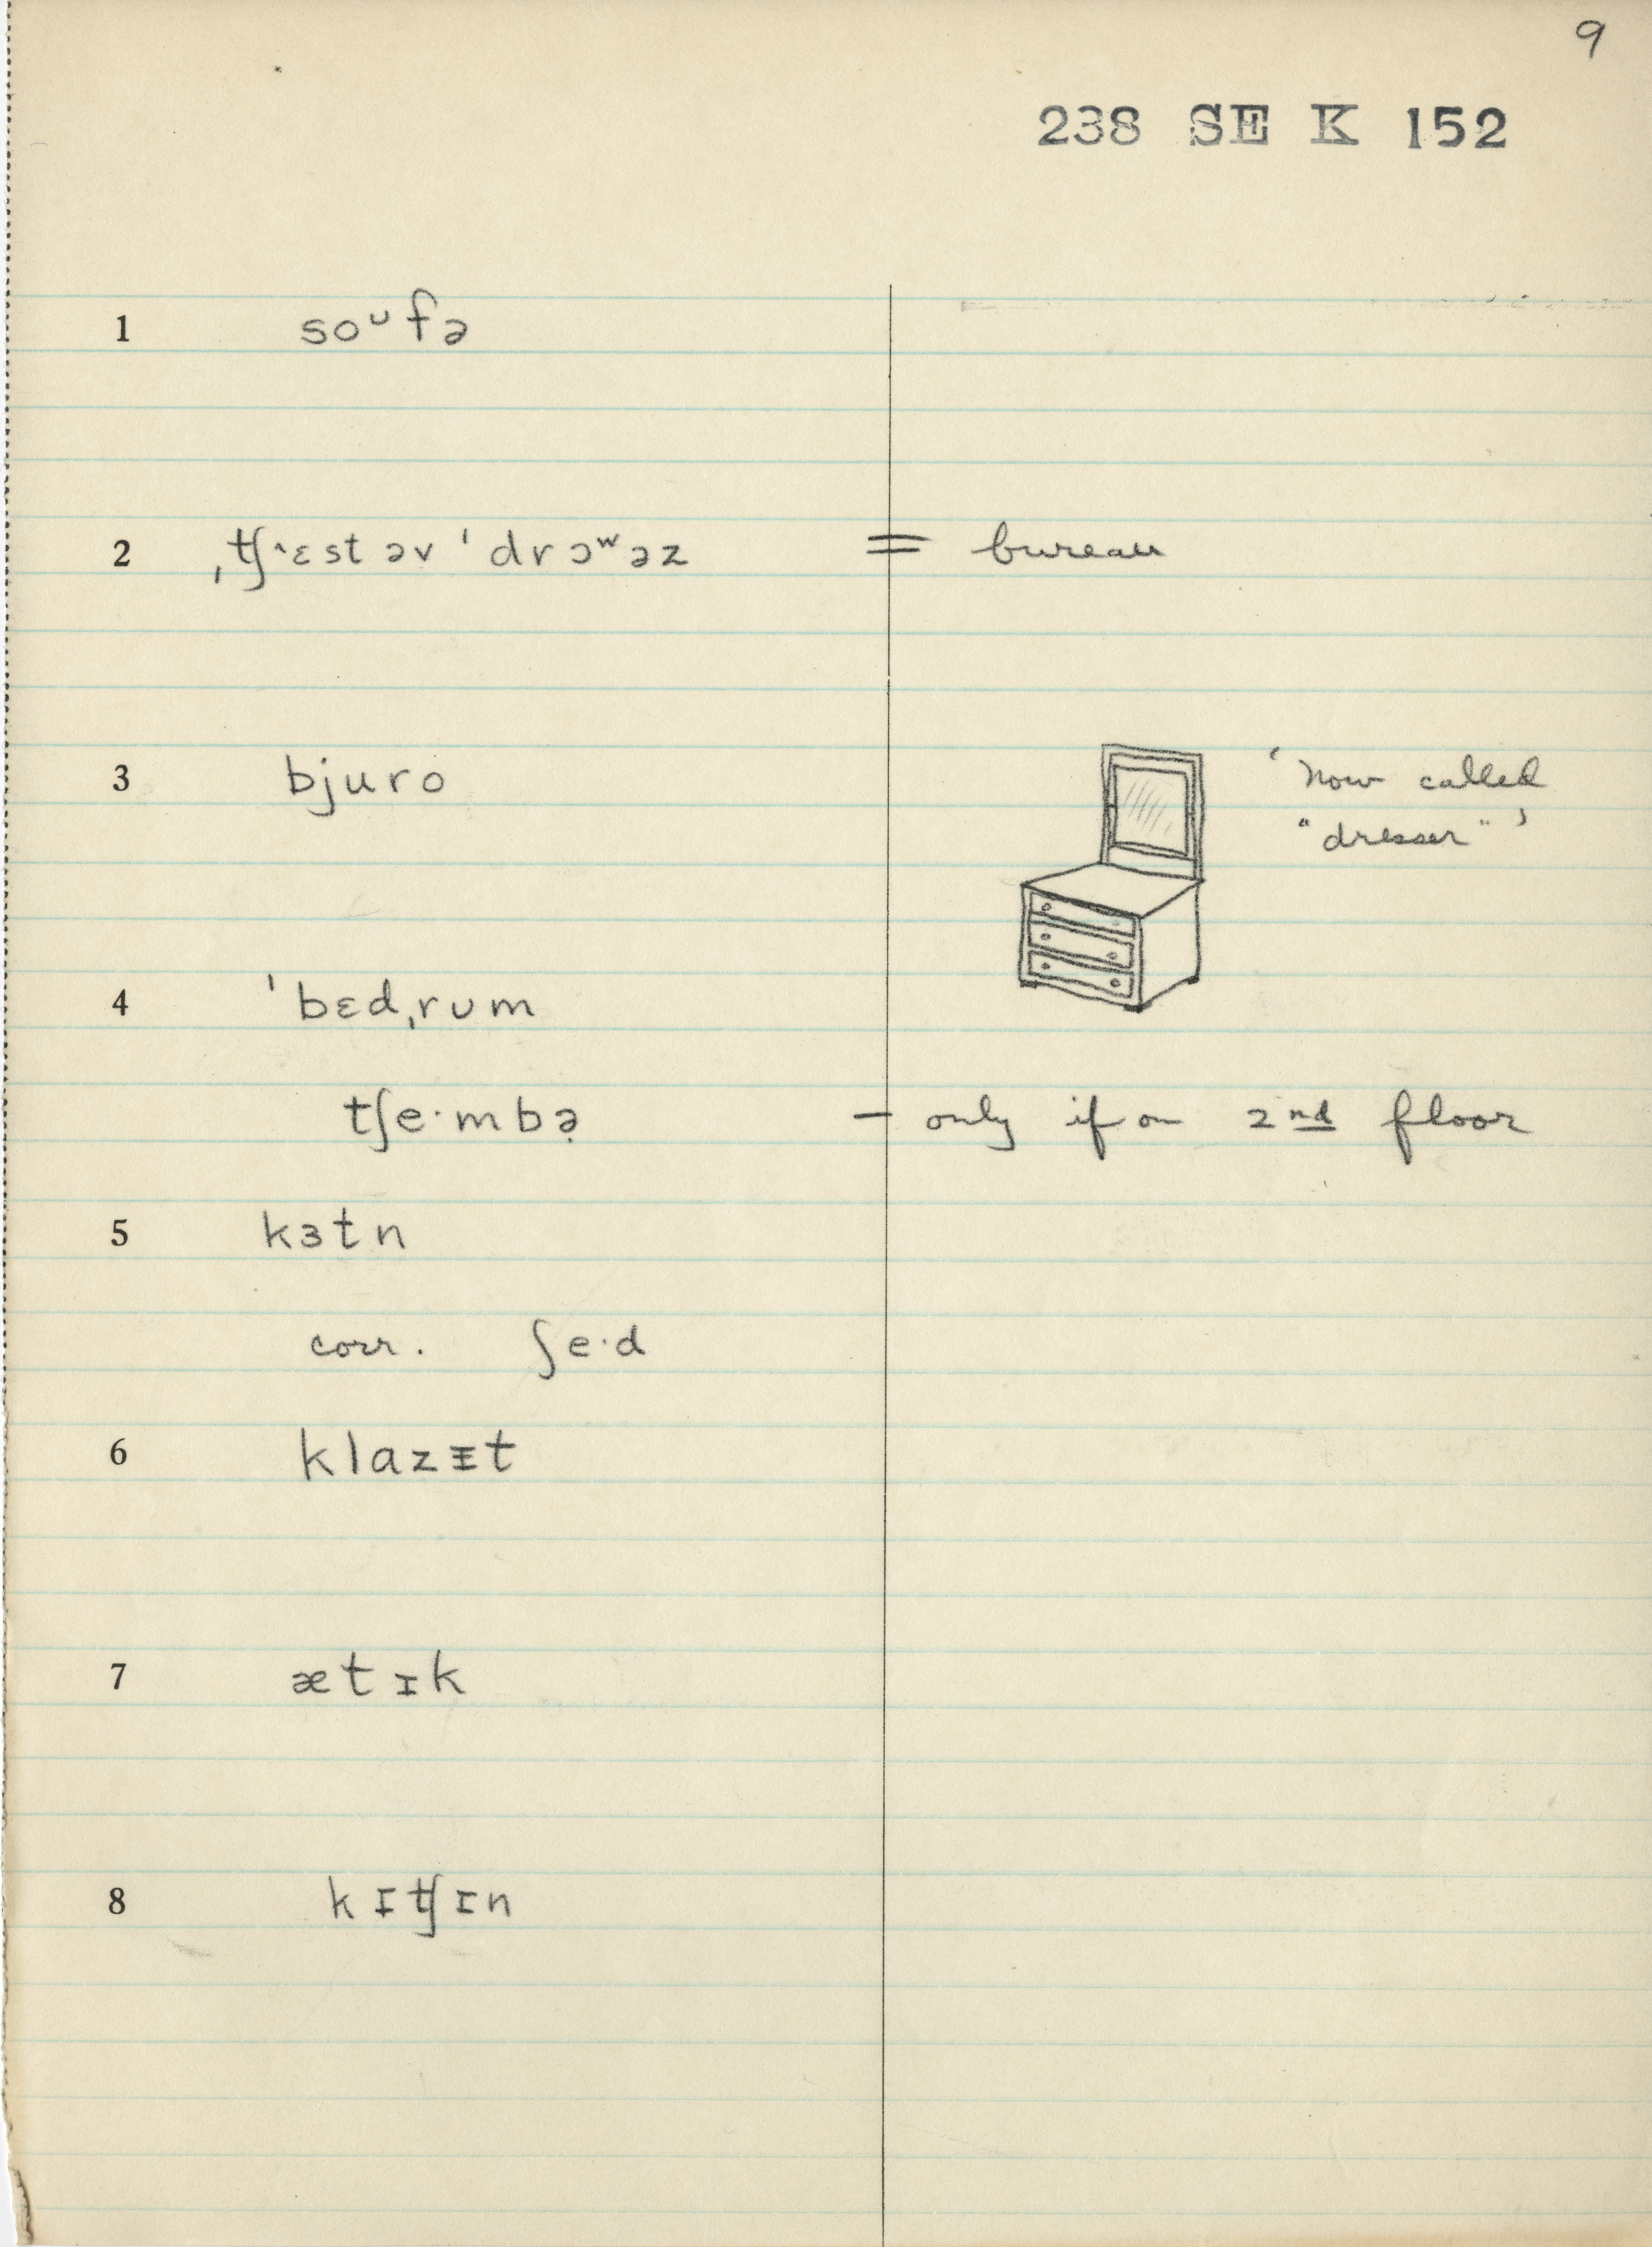 9
238 SE K 152
1 soᶷfə
2 ˌʧ˄ɛst əv ˈdrɔʷəz = bureau
3 bjuro ‘now called
“dresser”’
4 ˈbɛdˌrʊm
tʃe·mbə̣ – only if on 2nd floor
5 kɜtn
corr. ʃe·d
6 klazᵻt
7 ætɪk
8 kɪʧɪn